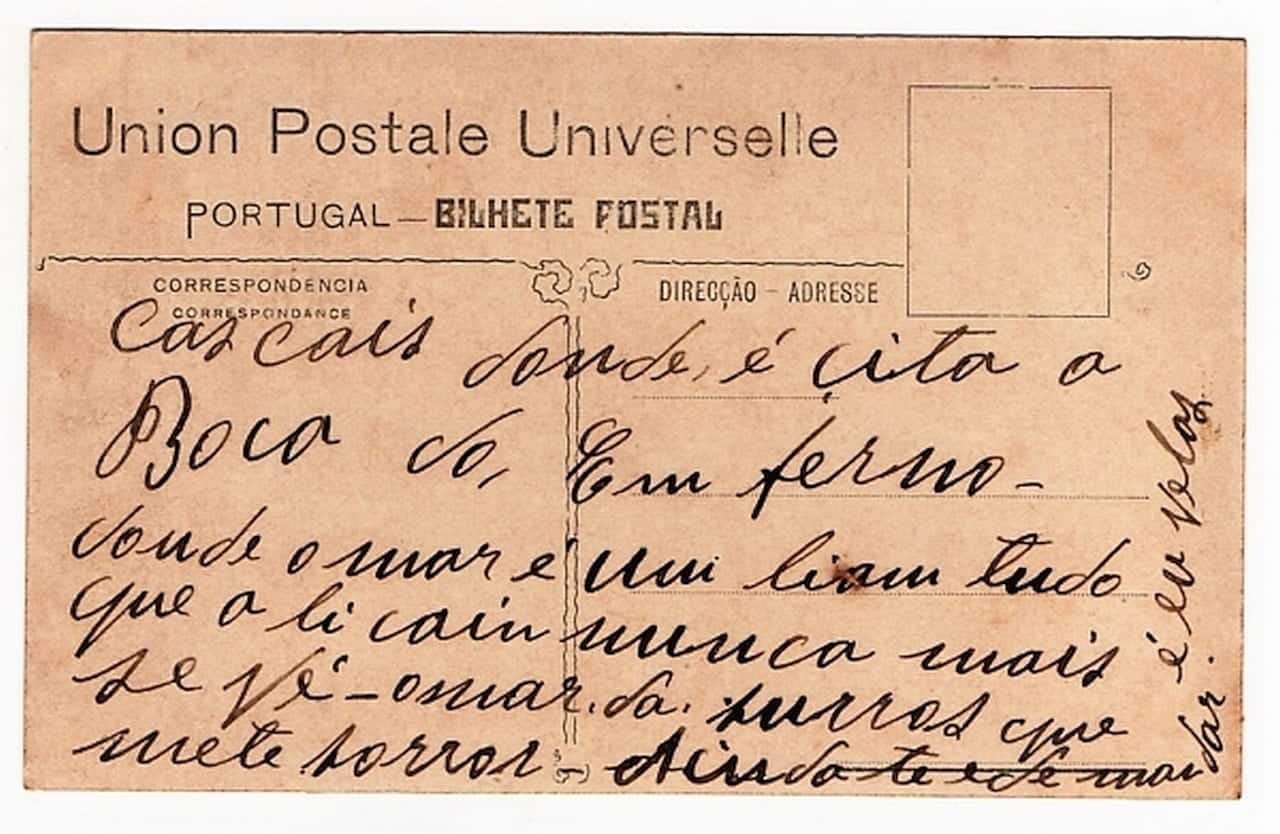 Union Postale Universelle
PORTUGAL — BILHETE POSTAL
CORRESPONDENCIA
CORRESPONDANCE
DIRECÇÃO - ADRESSE
Cascais donde, é çita a
Boca do, Em ferno-
donde o mar e um liam tudo
que a li cain nunca mais
se vé - omar. da. surros que
mete sorror - Ainda te ede man
dar. é eu velas